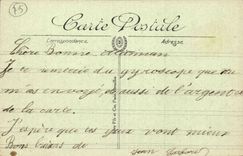 15
Carte Postale
Correspondance Adresse
Chère Bonne Maman
Je te remercie du gyroscope que tu
m as envoyé et aussi de l'argent et
de la carte.
J'espère que tes yeux vont mieux
Bons baisers de Jean